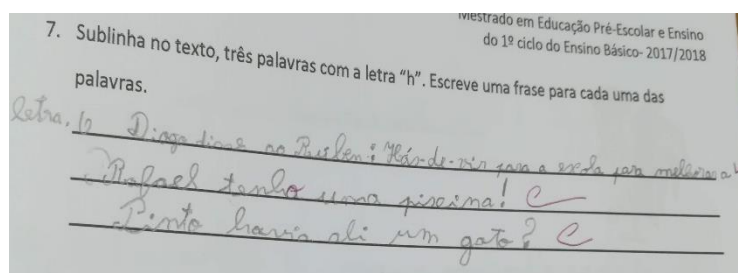 Mestrado em Educação Pré-Escolar e Ensino
do 1º ciclo do Ensino Básico- 2017/2018
7. Sublinha no texto, três palavras com a letra “h”. Escreve uma frase para cada uma das
palavras.
O Diogo disse ao Ruslen: Hás-de-vir para a escola para melhorar a
letra.
Rafael tenho uma piscina! C
Pinto havia ali um gato? C